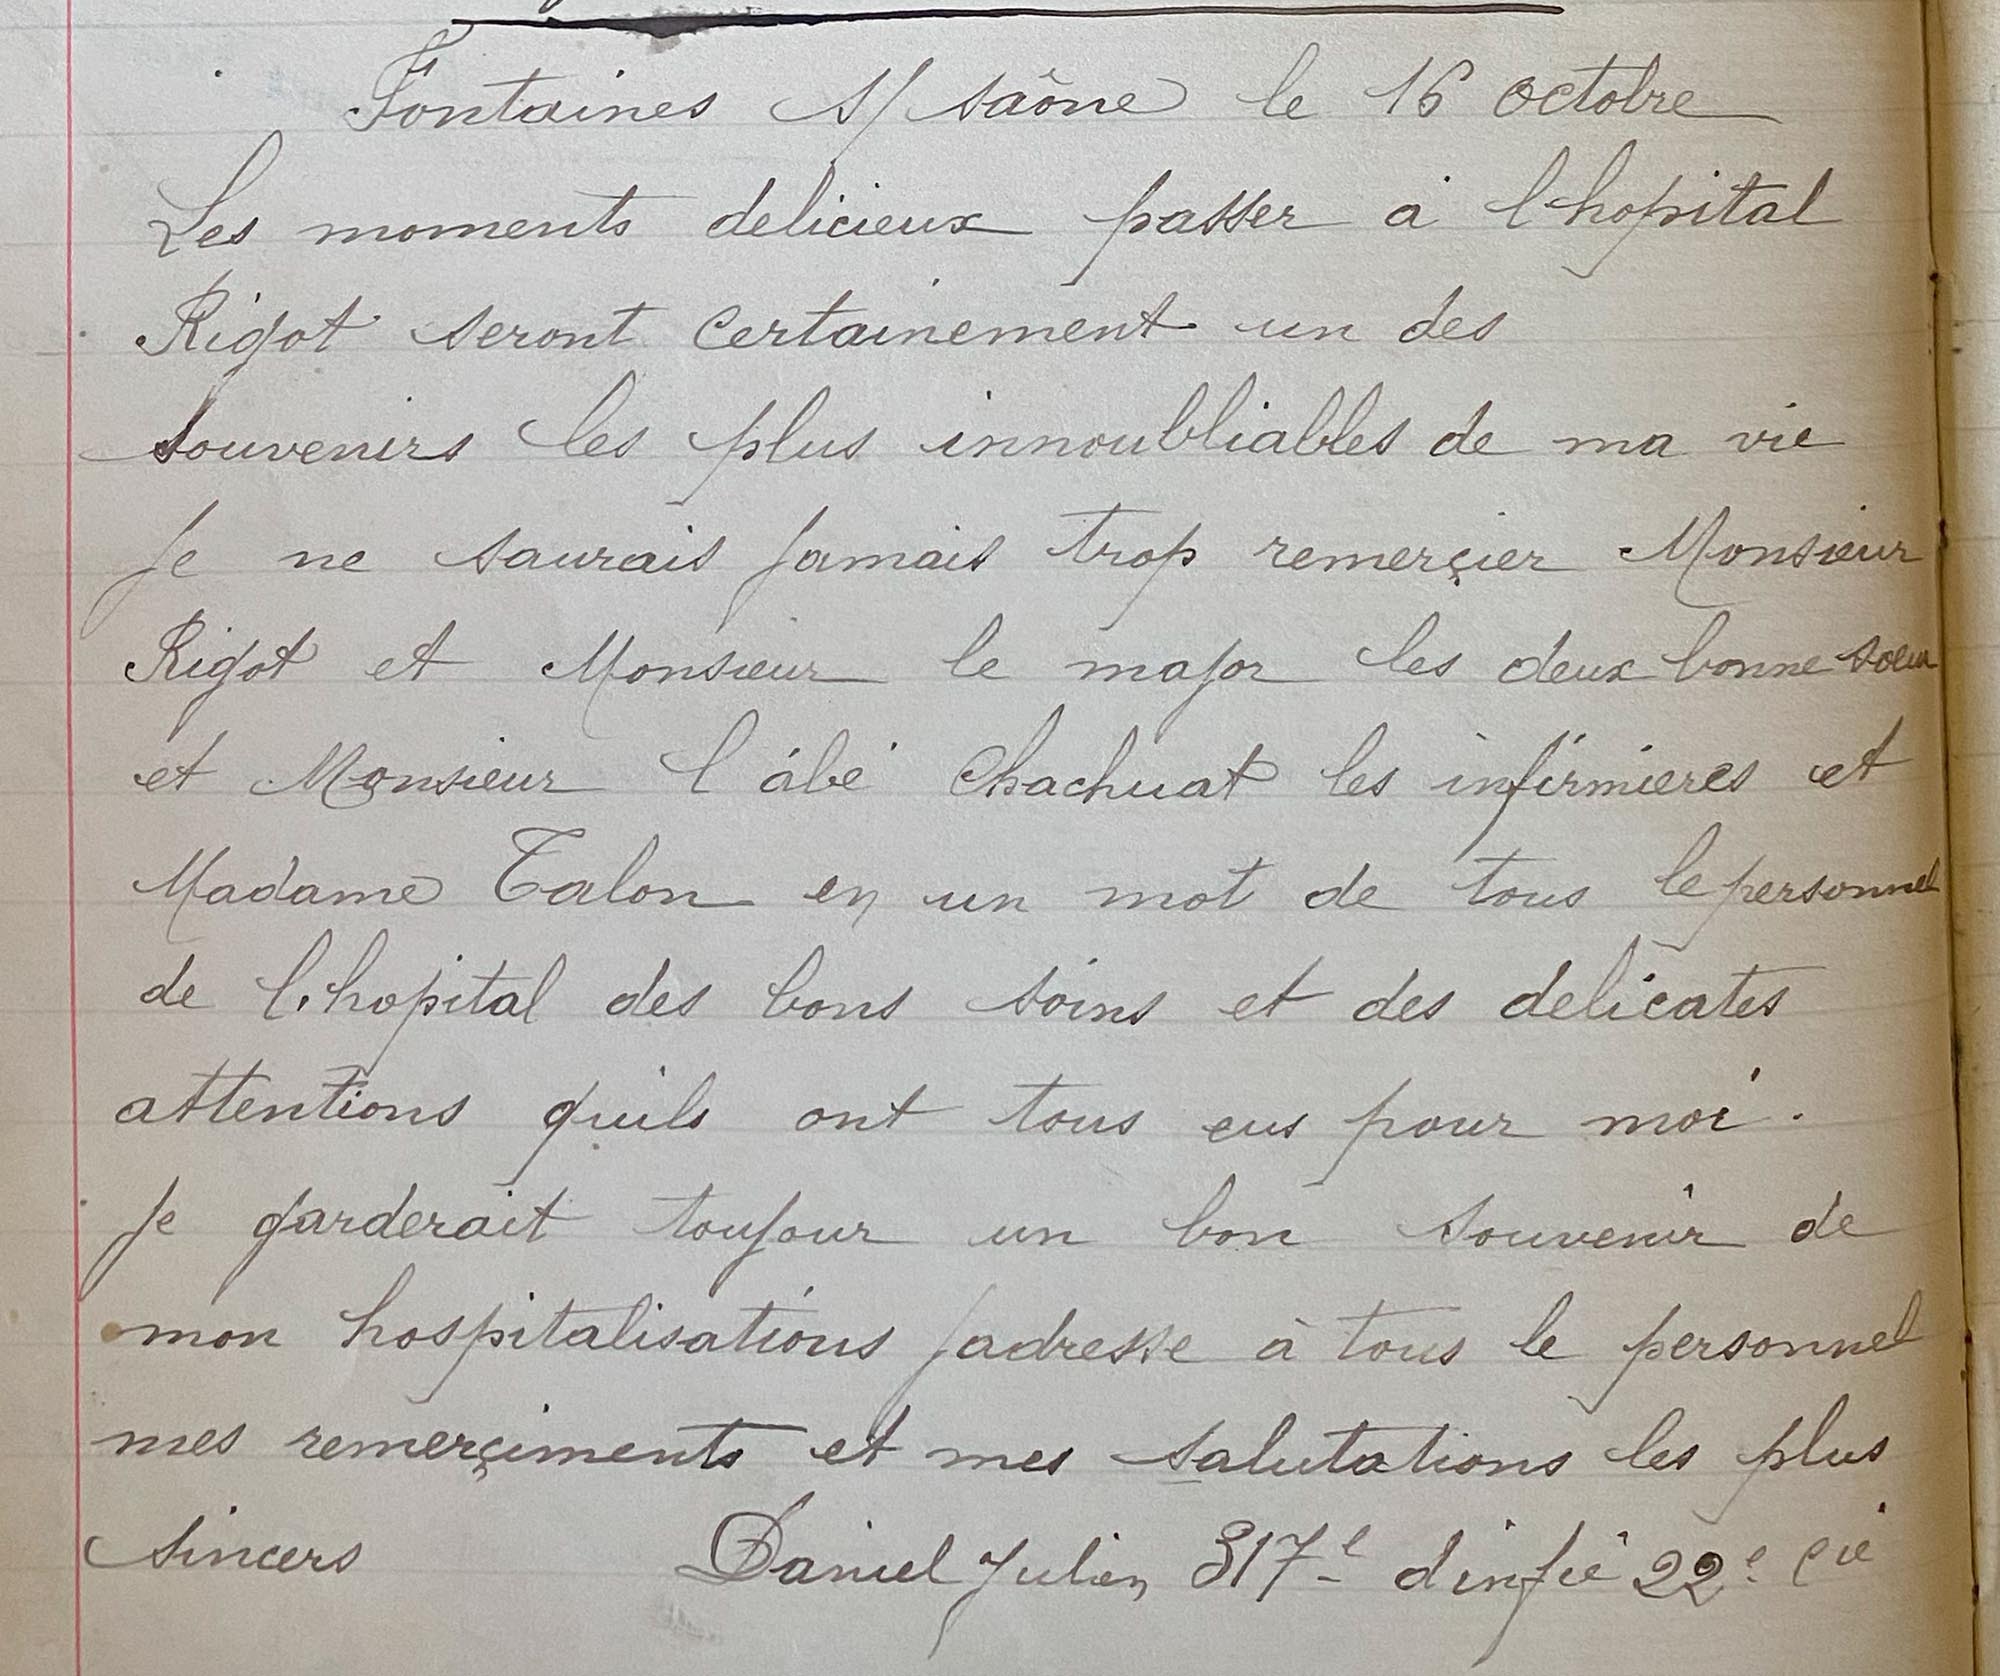 Fontaines s/ saône le 16 octobre
Les moments delicieux passer à l'hopital
Rigot seront certainement un des
souvenirs les plus innoubliables de ma vie
Je ne saurais jamais trop remerçier Monsieur
Rigot et Monsieur le major les deux bonne soeur
et Monsieur l'àbé Chachuat les infirmieres et
Madame Talon en un mot de tous le personnel
de l'hopital des bons soins et des delicates
attentions quils ont tous eus pour moi.
Je garderait toujour un bon souvenir de
mon hospitalisations jadresse à tous le personnel
mes remerçiments et mes salutations les plus
sincers Daniel Julien 317e dinfie 22e cie